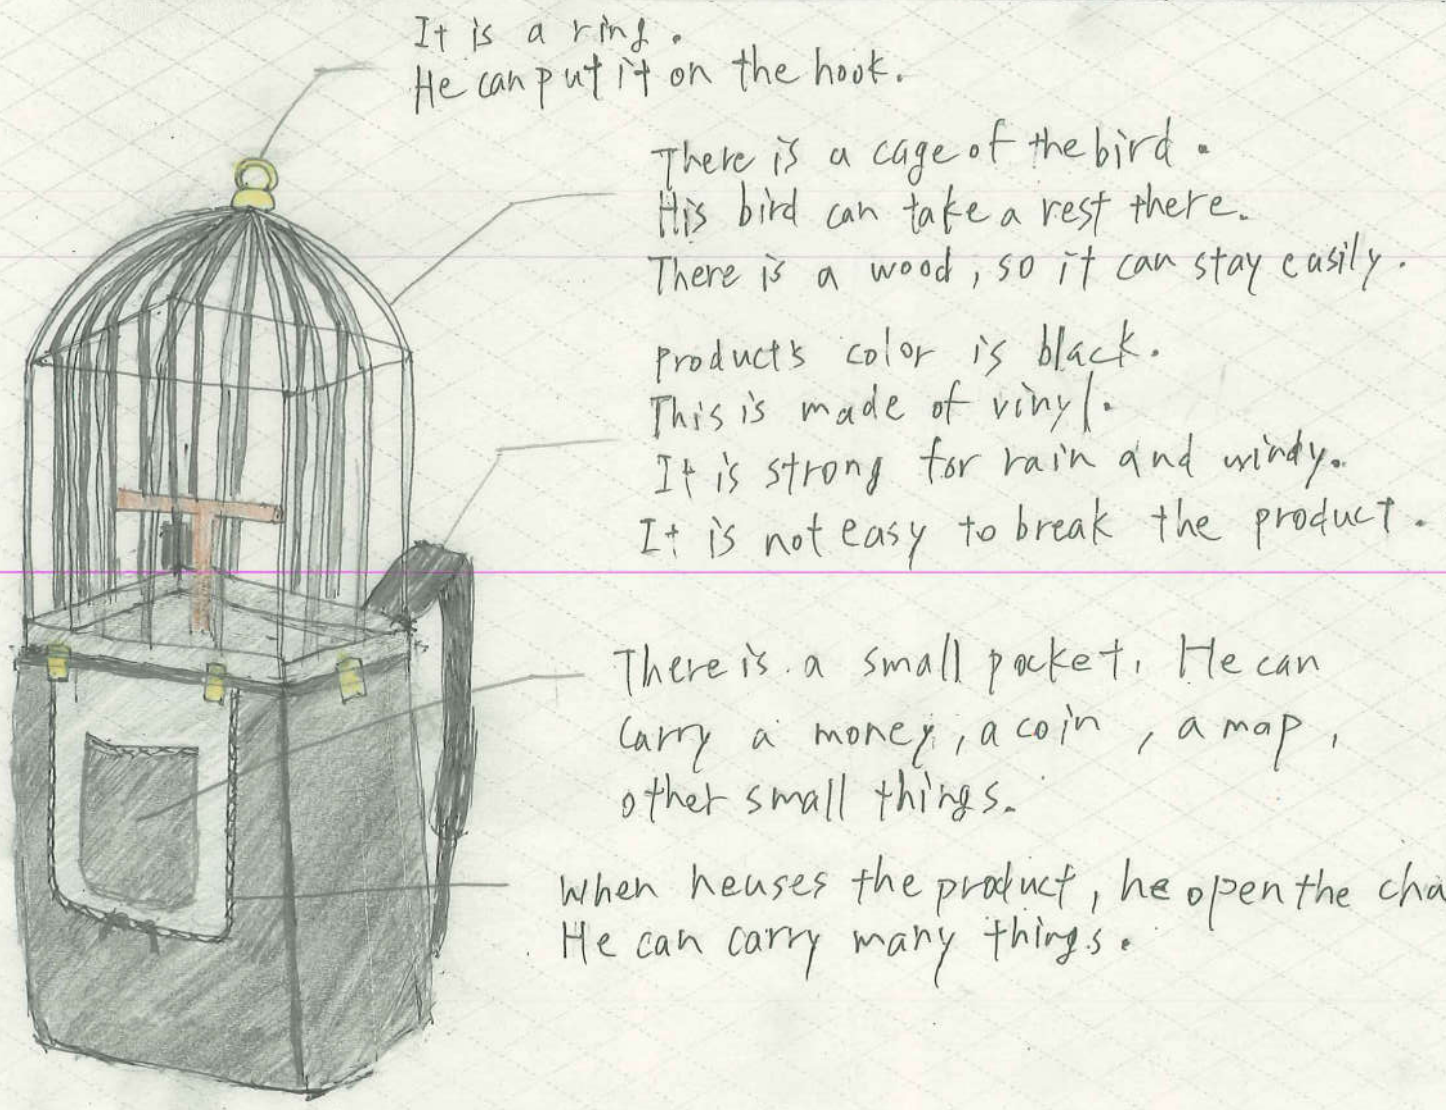 It is a ring.
He can put it on the hook.
There is a cage of the bird.
His bird can take a rest there.
There is a wood, so it can stay easily.
Product's color is black.
This is made of vinyl.
It is strong for rain and windy.
It is not easy to break the product.
There is a small pocket. He can
carry a money, a coin, a map,
other small things.
When he uses the product, he open the cha
He can carry many things.